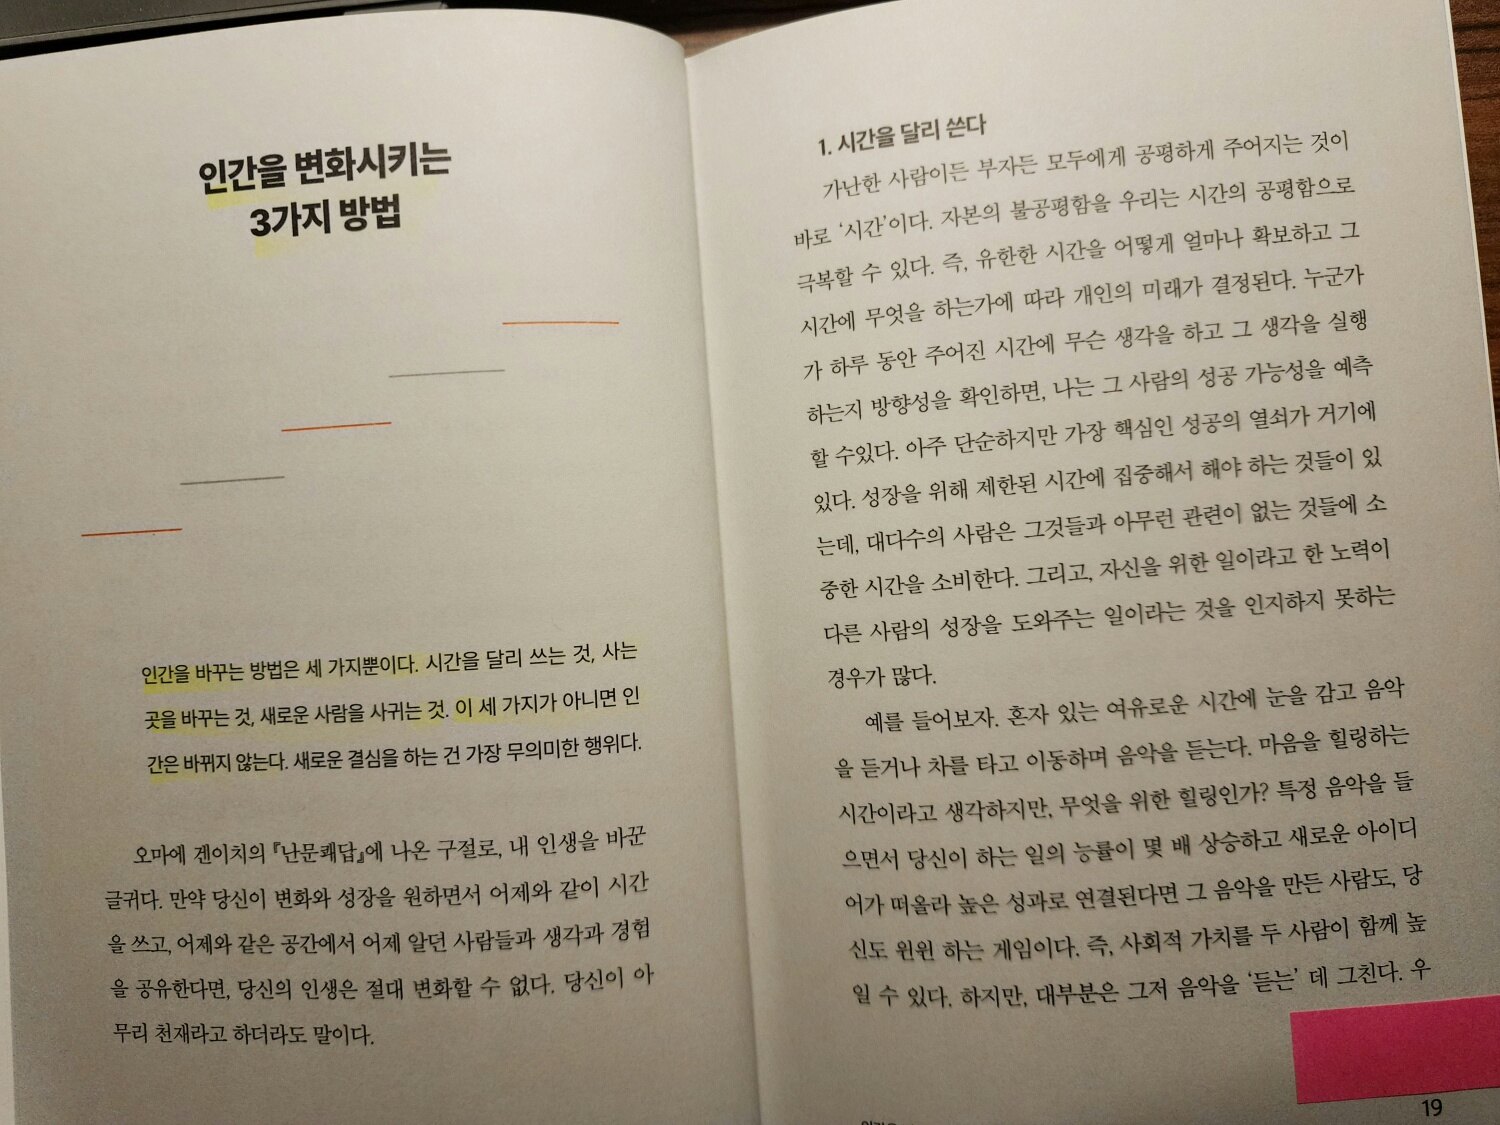 인간을 변화시키는
3가지 방법
인간을 바꾸는 방법은 세 가지뿐이다. 시간을 달리 쓰는 것, 사는
곳을 바꾸는 것, 새로운 사람을 사귀는 것. 이 세 가지가 아니면 인
간은 바뀌지 않는다. 새로운 결심을 하는 건 가장 무의미한 행위다.
오마에 겐이치의 『난문쾌답』에 나온 구절로, 내 인생을 바꾼
글귀다. 만약 당신이 변화와 성장을 원하면서 어제와 같이 시간
을 쓰고, 어제와 같은 공간에서 어제 알던 사람들과 생각과 경험
을 공유한다면, 당신의 인생은 절대 변화할 수 없다. 당신이 아
무리 천재라고 하더라도 말이다.
1. 시간을 달리 쓴다
가난한 사람이든 부자든 모두에게 공평하게 주어지는 것이
바로 ‘시간’이다. 자본의 불공평함을 우리는 시간의 공평함으로
극복할 수 있다. 즉, 유한한 시간을 어떻게 얼마나 확보하고 그
시간에 무엇을 하는가에 따라 개인의 미래가 결정된다. 누군가
가 하루 동안 주어진 시간에 무슨 생각을 하고 그 생각을 실행
하는지 방향성을 확인하면, 나는 그 사람의 성공 가능성을 예측
할 수있다. 아주 단순하지만 가장 핵심인 성공의 열쇠가 거기에
있다. 성장을 위해 제한된 시간에 집중해서 해야 하는 것들이 있
는데, 대다수의 사람은 그것들과 아무런 관련이 없는 것들에 소
중한 시간을 소비한다. 그리고, 자신을 위한 일이라고 한 노력이
다른 사람의 성장을 도와주는 일이라는 것을 인지하지 못하는
경우가 많다.
예를 들어보자. 혼자 있는 여유로운 시간에 눈을 감고 음악
을 듣거나 차를 타고 이동하며 음악을 듣는다. 마음을 힐링하는
시간이라고 생각하지만, 무엇을 위한 힐링인가? 특정 음악을 들
으면서 당신이 하는 일의 능률이 몇 배 상승하고 새로운 아이디
어가 떠올라 높은 성과로 연결된다면 그 음악을 만든 사람도, 당
신도 윈윈 하는 게임이다. 즉, 사회적 가치를 두 사람이 함께 높
일 수 있다. 하지만, 대부분은 그저 음악을 ‘듣는’ 데 그친다. 우
19